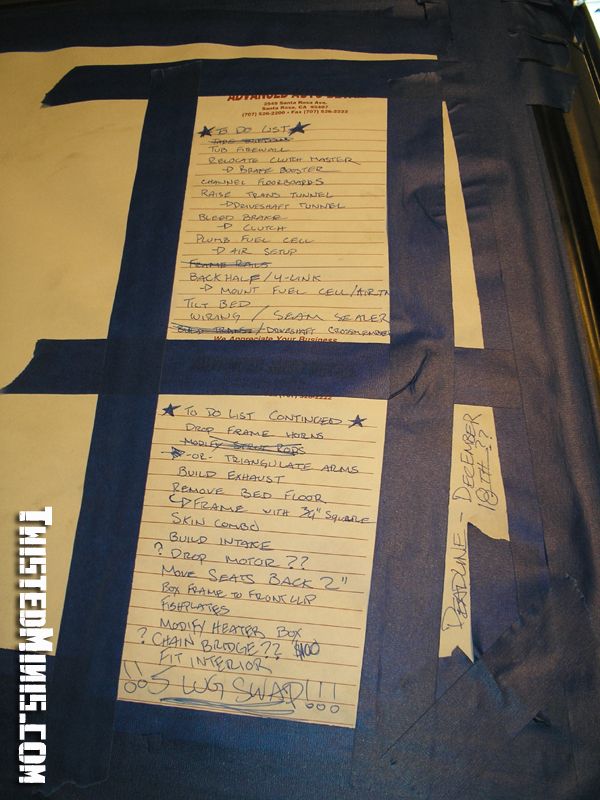 ADVANCED AUTO
2549 Santa Rosa Ave.
Santa Rosa, CA 95407
(707) 526-2200 • Fax (707) 526-2223
★ TO DO LIST ★
TUB FIREWALL
RELOCATE CLUTCH MASTER
→ BRAKE BOOSTER
CHANNEL FLOORBOARDS
RAISE TRANS TUNNEL
→ DRIVESHAFT TUNNEL
BLEED BRAKE
→ CLUTCH
PLUMB FUEL CELL
→ AIR SETUP
FRAME RAILS
BACKHALF/4-LINK
→ MOUNT FUEL CELL/AIRTN
TILT BED
WIRING / SEAM SEALER
BUILD TRANS/DRIVESHAFT CROSSMEMBER
We Appreciate Your Business
★ TO DO LIST CONTINUED ★
DROP FRAME HORNS
MODIFY STRUT RODS
-OR- TRIANGULATE ARMS
BUILD EXHAUST
REMOVE BED FLOOR
→ FRAME WITH 3/4" SQUARE
SKIN COMBO
BUILD INTAKE
? DROP MOTOR ??
MOVE SEATS BACK 2"
BOX FRAME TO FRONT CLIP
FISHPLATES
MODIFY HEATER BOX
? CHAIN BRIDGE ?? $100
FIT INTERIOR
!! 5 LUG SWAP!!!
DEADLINE - DECEMBER
18TH ??
TWISTEDMINIS.COM